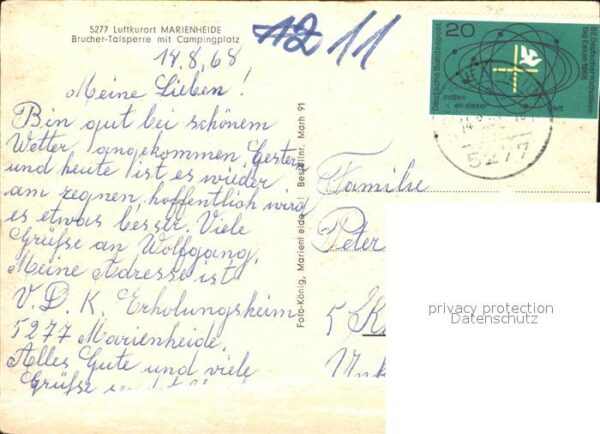 5277 Luftkurort MARIENHEIDE
Brucher-Talsperre mit Campingplatz
14.8,68
Meine Lieben!
Bin gut bei schönem
Wetter angekommen. Gestern
und heute ist es wieder
am regnen, hoffentlich wird
es etwas besser. Viele
Grüße an Wolfgang.
Meine Adresse ist
V.D.K. Erholungsheim
5277 Marienheide.
Alles Gute und viele
Grüße
Foto-König, Marienheide Bestellnr. Marh 91
12 11
20
Deutsche Bundespost
82. Deutscher Katholikentag Essen 1968
mitten in dieser Welt
5277
Familie
Peter
5 K
privacy protection
Datenschutz